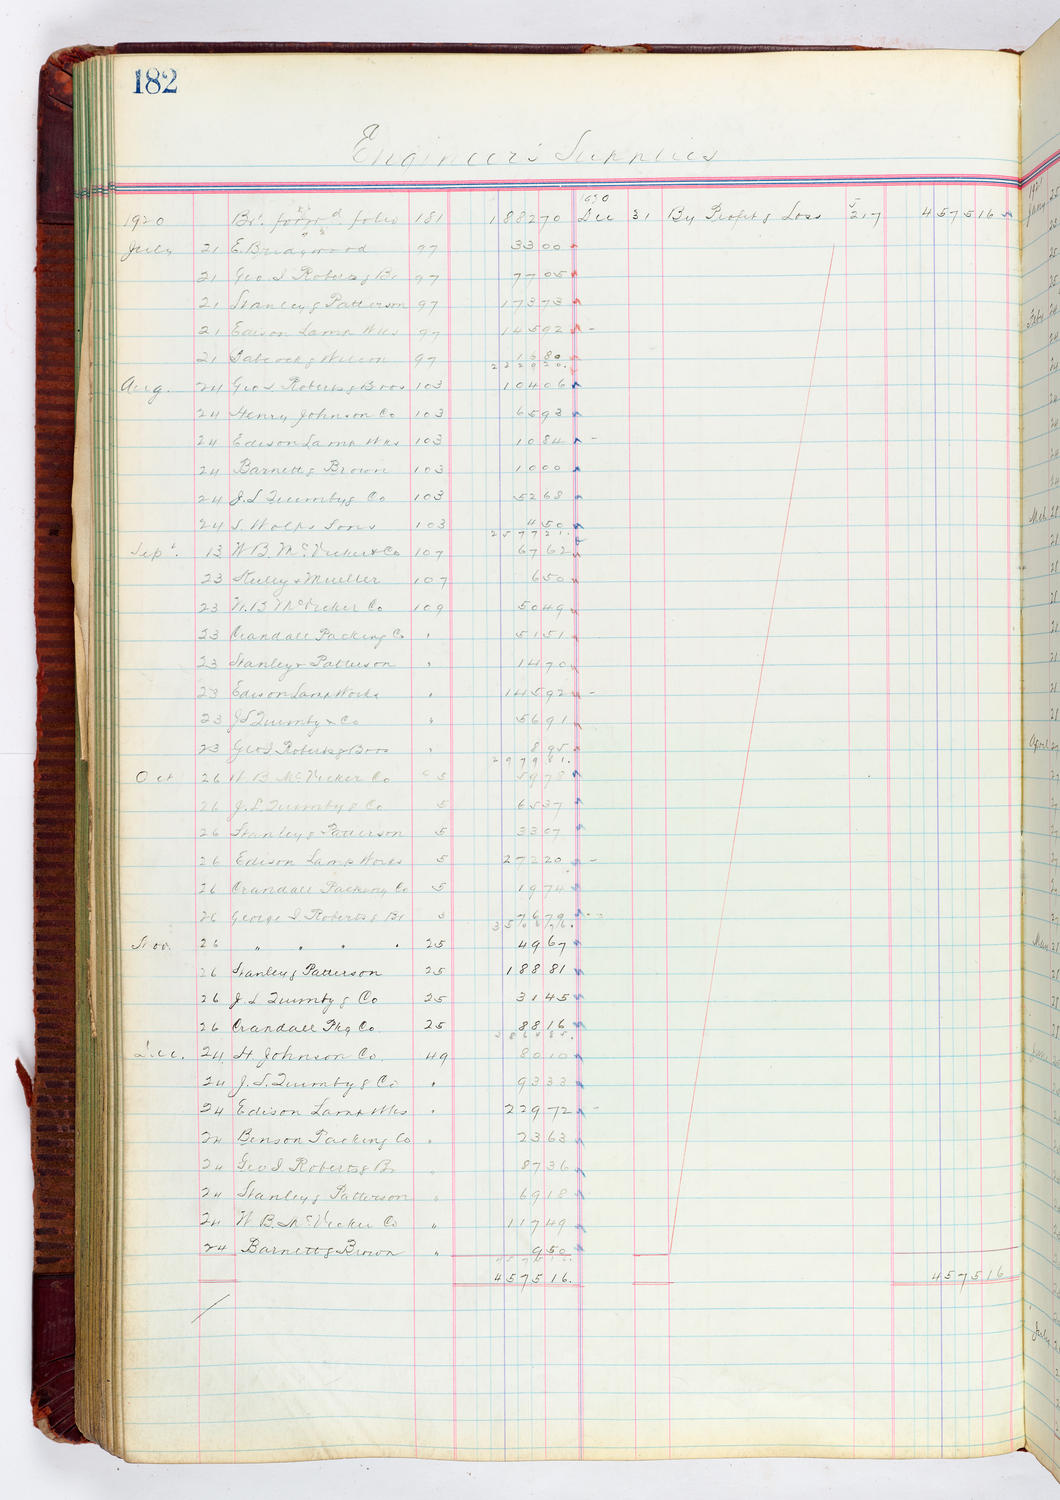 182
Engineer's Supplies
1920 Brt. forw'd folio 181 188270 1920 Dec 31 By Profit & Loss J 217 457516
July 21 E. Bridgwood 97 3300
21 Geo I Roberts & Br 97 7705
21 Stanley & Patterson 97 17373
21 Edison Lamp Wks 97 14592
21 Babcock & Wilcox 97 1680
232920.
Aug. 24 Geo I Roberts & Bros 103 10406
24 Henry Johnson Co 103 6593
24 Edison Lamp Wks 103 1084
24 Barnett & Brown 103 1000
24 J. L Quimby & Co 103 5268
24 S. Wolfs Sons 103 450
257721.
Sept. 13 W B. McVicker & Co 107 6762
23 & Mueller 107 650
23 W. B McVicker Co 109 5049
23 Crandall Packing Co " 5151
23 Stanley & Patterson " 1470
23 Edison Lamp Works " 14592
23 J L Quimby & Co " 5691
23 Geo I. Roberts & Bros " 895
297981.
Oct 26 W. B McVicker Co 5 5978
26 J. L Quimby & Co 5 6537
26 Stanley & Patterson 5 3307
26 Edison Lamp Works 5 27220
26 Crandall Packing Co 5 1974
26 George I Roberts & Br 5 7679
350676.
Nov. 26 " " " " 25 4967
26 Stanley & Patterson 25 18881
26 J. L Quimby & Co 25 3145
26 Crandall Pkg Co. 25 8816
386485.
Dec. 24 H. Johnson Co. 49 8010
24 J. L. Quimby & Co " 9333
24 Edison Lamp Wks " 22972
24 Benson Packing Co " 2363
24 Geo I Roberts & Br " 8736
24 Stanley & Patterson " 6918
24 W B. McVicker Co " 11749
24 Barnett & Brown " 950
457516.
457516. 457516